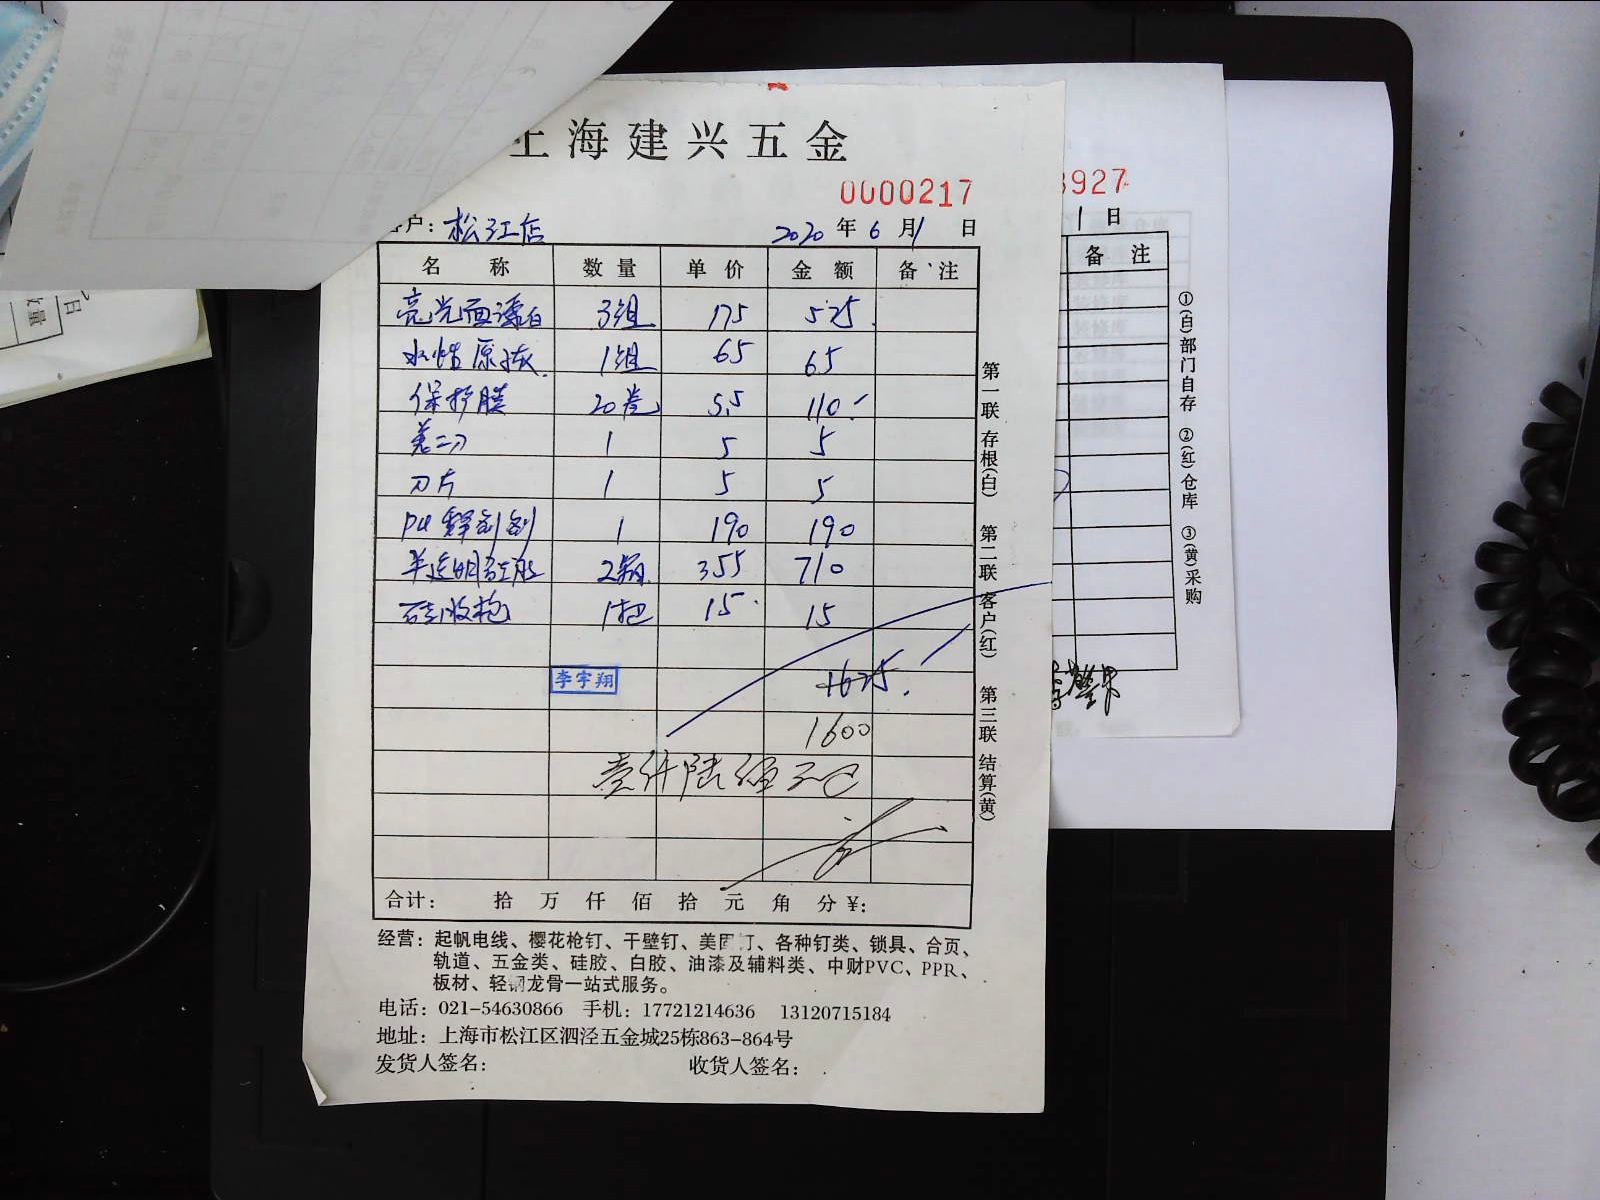 上海建兴五金
0000217
户：松江店 2020年6月1日
名称 数量 单价 金额 备注
亮光面漆白 3组 175 525
水性原灰 1组 65 65
保护膜 20卷 5.5 110
美工刀 1 5 5
刀片 1 5 5
PU 1 190 190
半透明 2箱 355 710
硅胶枪 1把 15 15
1625
李宇翔
1600
壹仟陆佰元
合计： 拾 万 仟 佰 拾 元 角 分 ¥：
经营：起帆电线、樱花枪钉、干壁钉、美固钉、各种钉类、锁具、合页、
轨道、五金类、硅胶、白胶、油漆及辅料类、中财PVC、PPR、
板材、轻钢龙骨一站式服务。
电话：021-54630866 手机：17721214636 13120715184
地址：上海市松江区泗泾五金城25栋863-864号
发货人签名： 收货人签名：
第一联 存根(白) 第二联 客户(红) 第三联 结算(黄)
3927
1日
备注
①(白)部门自存 ②(红)仓库 ③(黄)采购